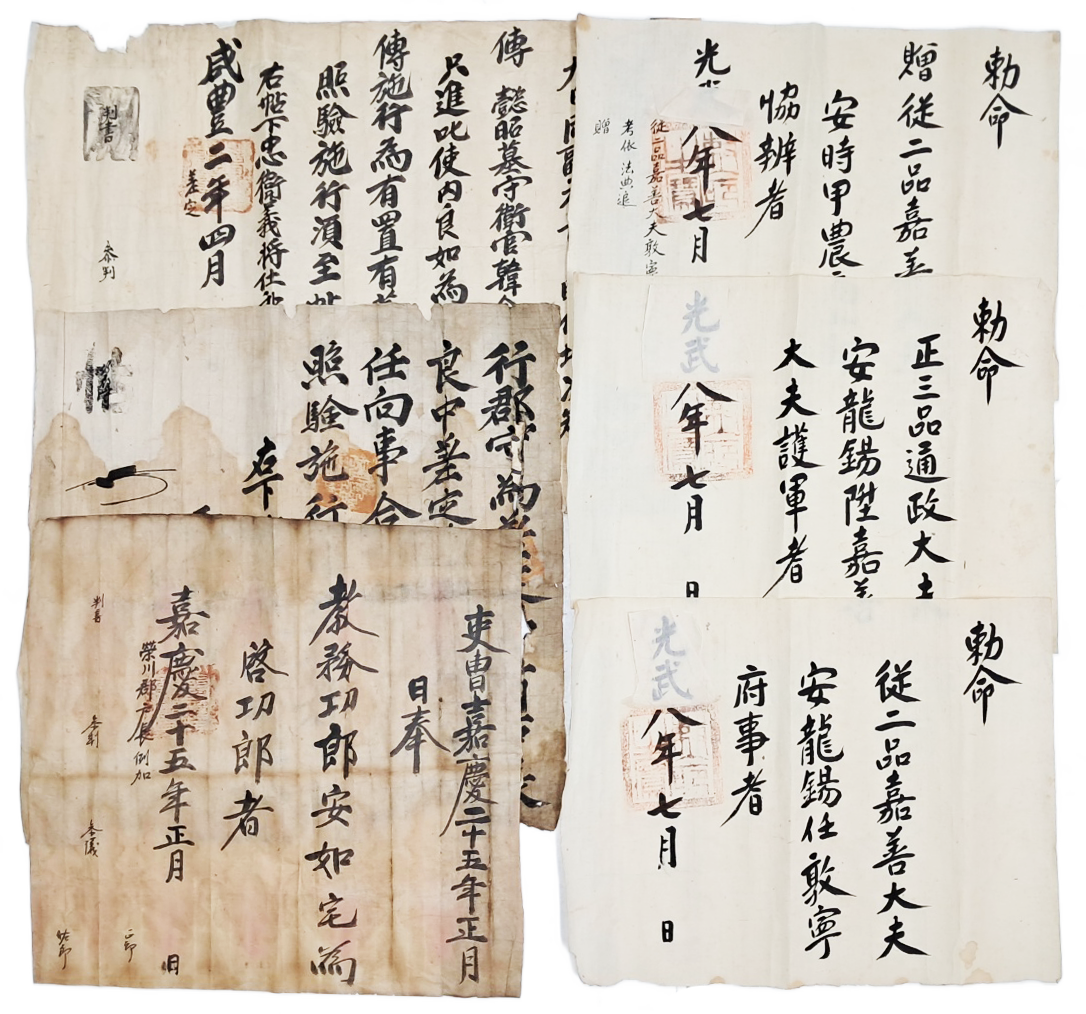 勅命
贈從二品嘉善
安時甲農
協辦者
光
八年七月
從二品嘉善大夫敦寧
考依法典追
贈
勅命
正三品通政大夫
安龍錫陞嘉善
大夫護軍者
光武
八年七月
日
勅命
從二品嘉善大夫
安龍錫任敦寧
府事者
光武
八年七月
日
傳 懿昭墓守衛官韓
只進叱使內良如為
傳施行為有置有
照驗施行須至帖
右帖下忠衛義將仕郎
咸豊二年四月
差定
判書
參判
行郡守為
良中差定
任向事合
照驗施行
右下
吏曹嘉慶二十五年正月
日奉
教務功郎安如宅為
啓功郎者
嘉慶二十五年正月
日
榮川郡戶長例加
判書
參判
參議
正郎
佐郎